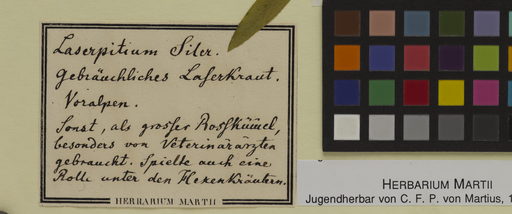 Laserpitium Siler.
Gebräuchliches Laserkraut.
Voralpen.
Sonst, als grosser Rosskümel,
besonders von Veterinärärzten
gebraucht. Spielte auch eine
Rolle unter den Hexenkräutern.
HERBARIUM MARTII
HERBARIUM MARTII
Jugendherbar von C. F. P. von Martius, 1